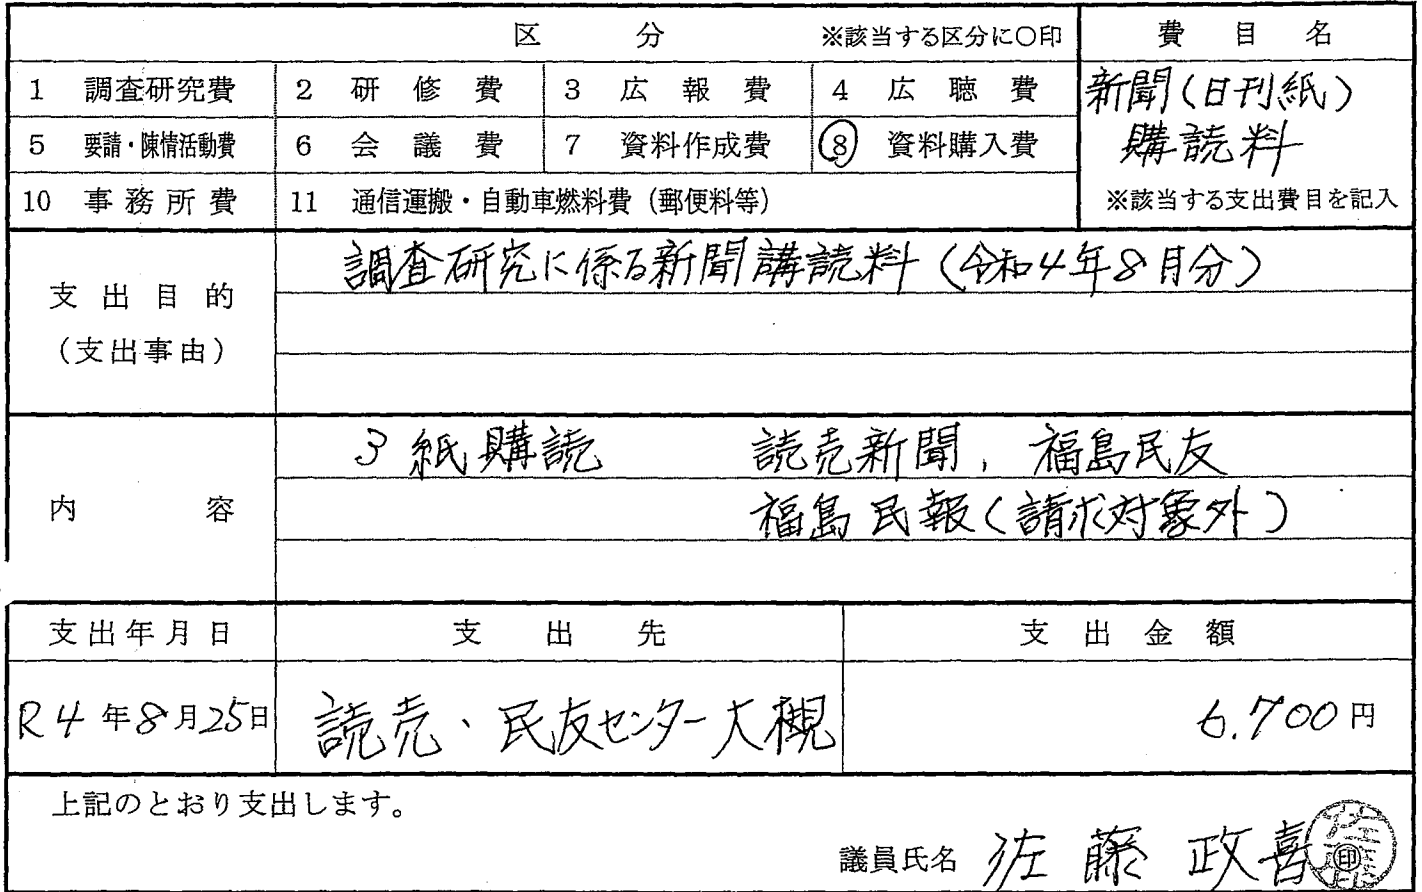 区 分 ※該当する区分に○印 費目名
1 調査研究費 2 研修費 3 広報費 4 広聴費 新聞(日刊紙)
5 要請・陳情活動費 6 会議費 7 資料作成費 8 資料購入費 購読料
10 事務所費 11 通信運搬・自動車燃料費(郵便料等) ※該当する支出費目を記入
支出目的
(支出事由)
調査研究に係る新聞講読料(令和4年8月分)
内容
3紙購読 読売新聞, 福島民友
福島民報(請求対象外)
支出年月日 支出先 支出金額
R4年8月25日 読売、民友センター大槻 6.700円
上記のとおり支出します。
議員氏名 佐藤政喜 印
佐藤